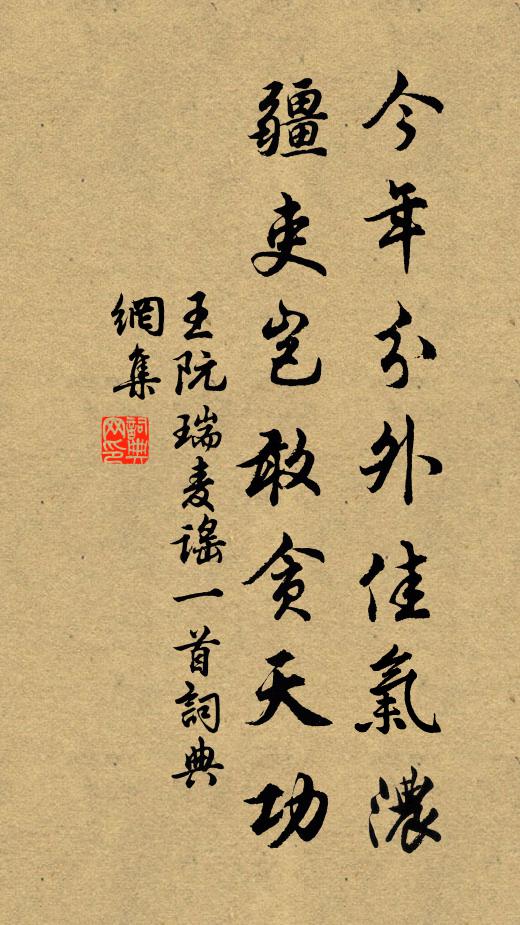 今年分外佳氣濃
疆吏豈敢貪天功
王阮瑞麦謠一首詞典
網集
詞典
网印